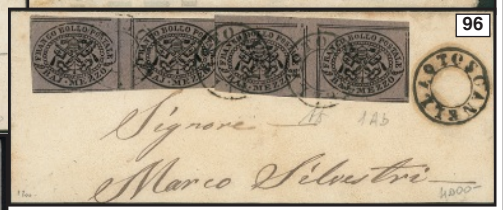 96
FRANCO BOLLO POSTALE
BAI-MEZZO
FRANCO BOLLO POSTALE
BAI-MEZZO
FRANCO BOLLO POSTALE
BAI-MEZZO
FRANCO BOLLO POSTALE
BAI-MEZZO
15 1Ab
Signore
Marco Silvestri
4000-